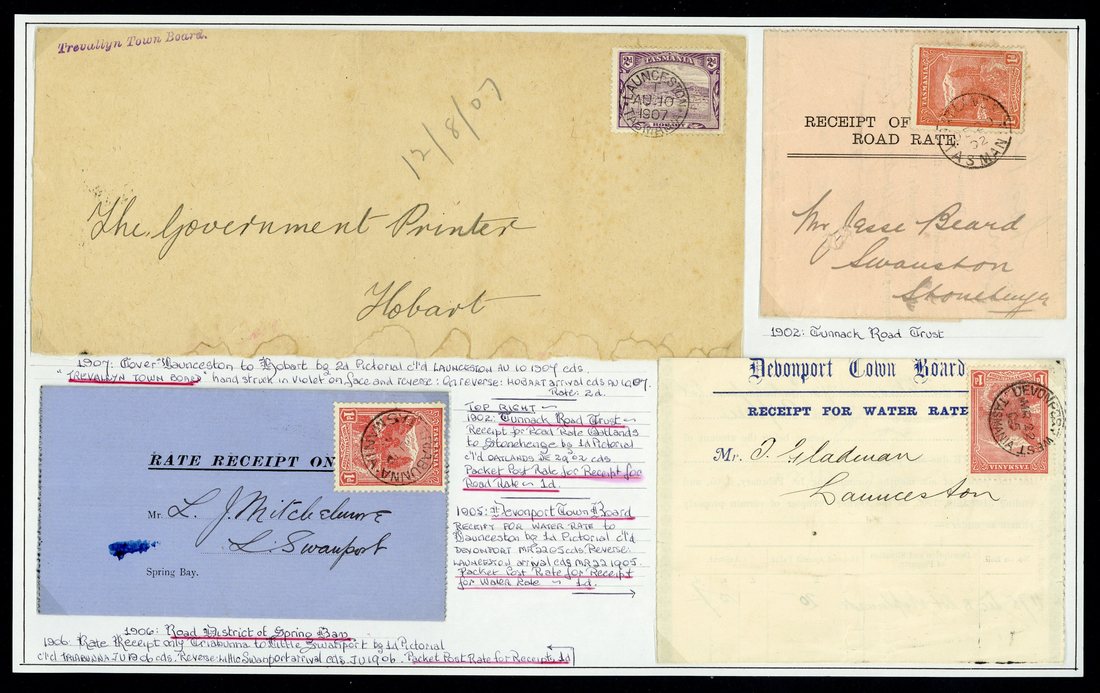 Trevallyn Town Board.
2d TASMANIA 2d
LAUNCESTON
1
AU 10
1907
TASMANIA
12/8/07
The Government Printer
Hobart
1d TASMANIA 1d
TASMAN
02
RECEIPT OF
ROAD RATE.
Mr Jesse Beard
Swanston
Stonehenge
1902: Tunnack Road Trust
1907: Cover Launceston to Hobart by 2d Pictorial c'l'd LAUNCESTON AU 10 1907 cds.
"TREVALLYN TOWN BOARD" hand struck in violet on face and reverse: On reverse: HOBART arrival cds AU 1907.
Rate: 2d.
TOP RIGHT ~
1902: Tunnack Road Trust ~
Receipt for Road Rate Oatlands
to Stonehenge by 1d Pictorial
c'l'd OATLANDS DE 29 02 cds
Packet Post Rate for Receipt for
Road Rate ~ 1d.
1905: Devonport Town Board
RECEIPT FOR WATER RATE to
Launceston by 1d Pictorial c'l'd
DEVONPORT MR 22 05 cds: Reverse:
LAUNCESTON arrival cds MR 22 1905.
Packet Post Rate for Receipt
for Water Rate ~ 1d.
1d 1d
TASMANIA
TRIABUNNA
RATE RECEIPT ON
Mr. L. J. Mitchelmore
L. Swanport
Spring Bay.
1906: Road District of Spring Bay
1906: Rate Receipt only Triabunna to Little Swanport by 1d Pictorial
c'l'd TRIABUNNA JU 19 06 cds. Reverse: Little Swanport arrival cds JU 19 06. Packet Post Rate for Receipts 1d
Devonport Town Board
RECEIPT FOR WATER RATE
1d 1d
TASMANIA
DEVONPORT WEST
TASMANIA
MR 22
05
Mr. T. Gladman
Launceston